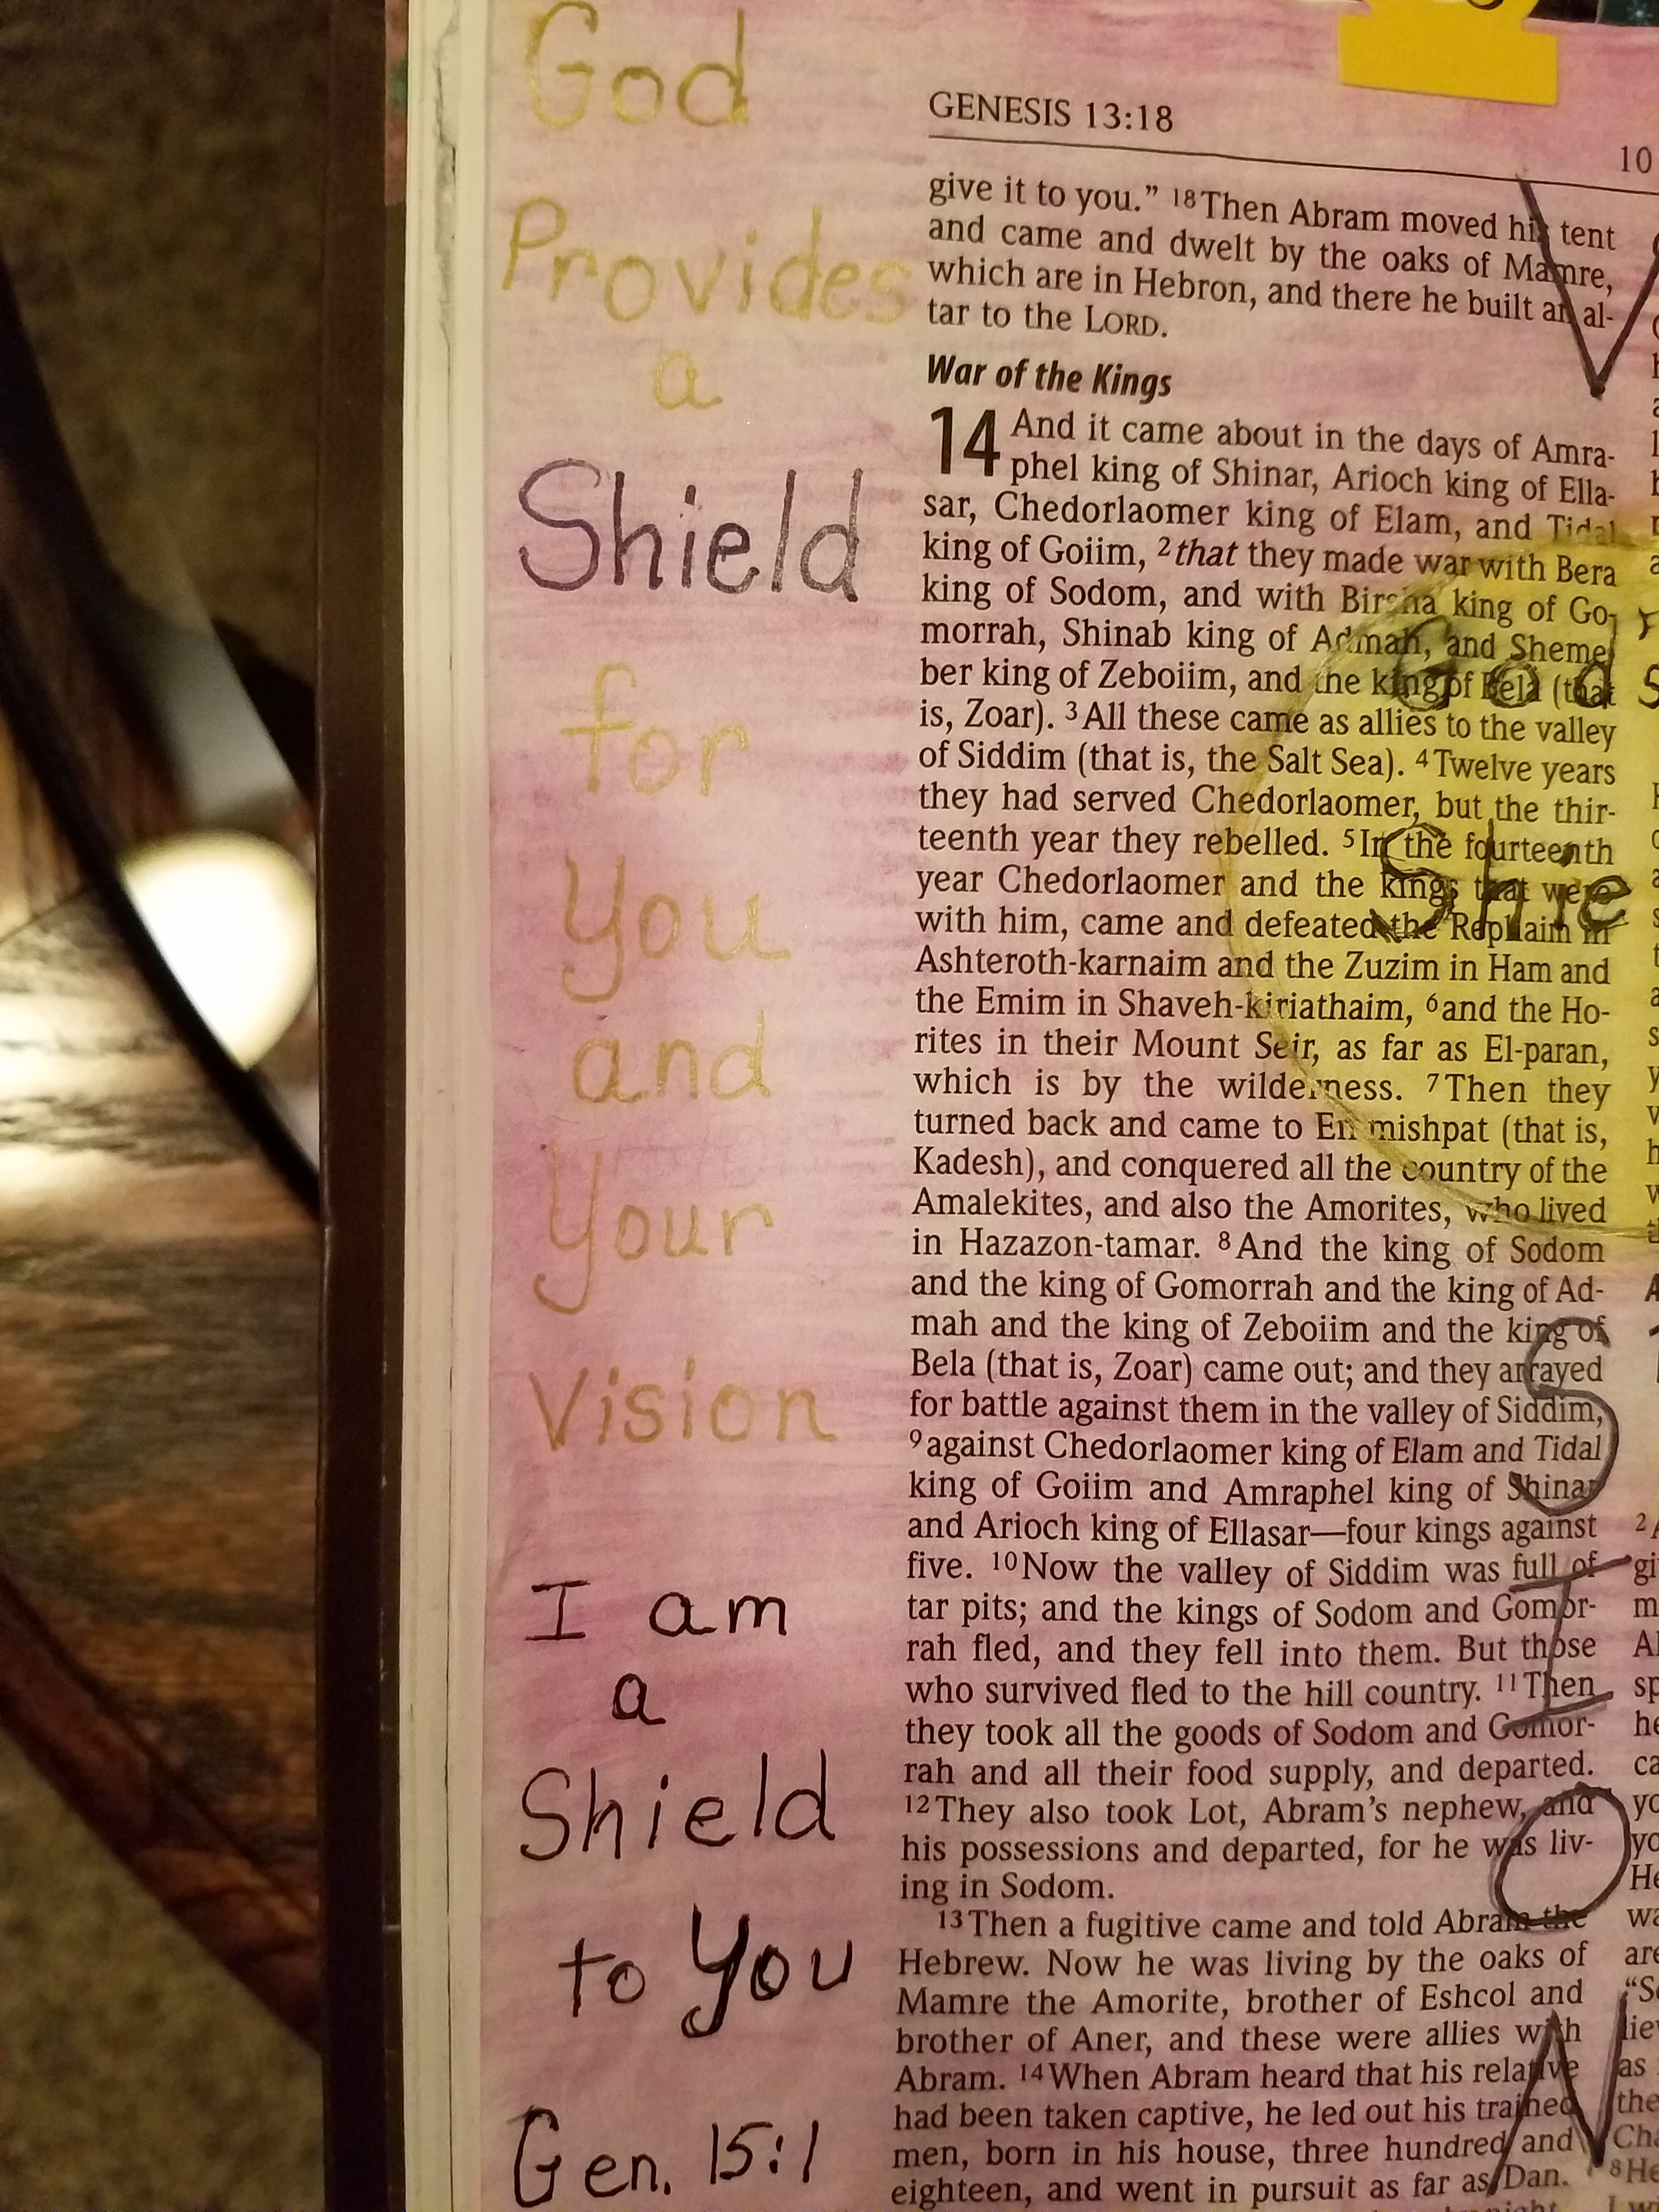 God
Provides
a
Shield
for
You
and
Your
Vision
I am
a
Shield
to You
Gen. 15:1
GENESIS 13:18
10
give it to you.” 18Then Abram moved his tent
and came and dwelt by the oaks of Mamre,
which are in Hebron, and there he built an al-
tar to the LORD.
War of the Kings
14 And it came about in the days of Amra-
phel king of Shinar, Arioch king of Ella-
sar, Chedorlaomer king of Elam, and Tidal
king of Goiim, 2that they made war with Bera
king of Sodom, and with Birsha king of Go-
morrah, Shinab king of Admah, and Sheme
ber king of Zeboiim, and the king of Bela (that
is, Zoar). 3All these came as allies to the valley
of Siddim (that is, the Salt Sea). 4Twelve years
they had served Chedorlaomer, but the thir-
teenth year they rebelled. 5In the fourteenth
year Chedorlaomer and the kings that were
with him, came and defeated the Rephaim in
Ashteroth-karnaim and the Zuzim in Ham and
the Emim in Shaveh-kiriathaim, 6and the Ho-
rites in their Mount Seir, as far as El-paran,
which is by the wilderness. 7Then they
turned back and came to En-mishpat (that is,
Kadesh), and conquered all the country of the
Amalekites, and also the Amorites, who lived
in Hazazon-tamar. 8And the king of Sodom
and the king of Gomorrah and the king of Ad-
mah and the king of Zeboiim and the king of
Bela (that is, Zoar) came out; and they arrayed
for battle against them in the valley of Siddim,
9against Chedorlaomer king of Elam and Tidal
king of Goiim and Amraphel king of Shinar
and Arioch king of Ellasar—four kings against
five. 10Now the valley of Siddim was full of
tar pits; and the kings of Sodom and Gomor-
rah fled, and they fell into them. But those
who survived fled to the hill country. 11Then
they took all the goods of Sodom and Gomor-
rah and all their food supply, and departed.
12They also took Lot, Abram’s nephew, and
his possessions and departed, for he was liv-
ing in Sodom.
13Then a fugitive came and told Abram the
Hebrew. Now he was living by the oaks of
Mamre the Amorite, brother of Eshcol and
brother of Aner, and these were allies with
Abram. 14When Abram heard that his relative
had been taken captive, he led out his trained
men, born in his house, three hundred and
eighteen, and went in pursuit as far as Dan.
V
God s
Shie
S
I
O
N